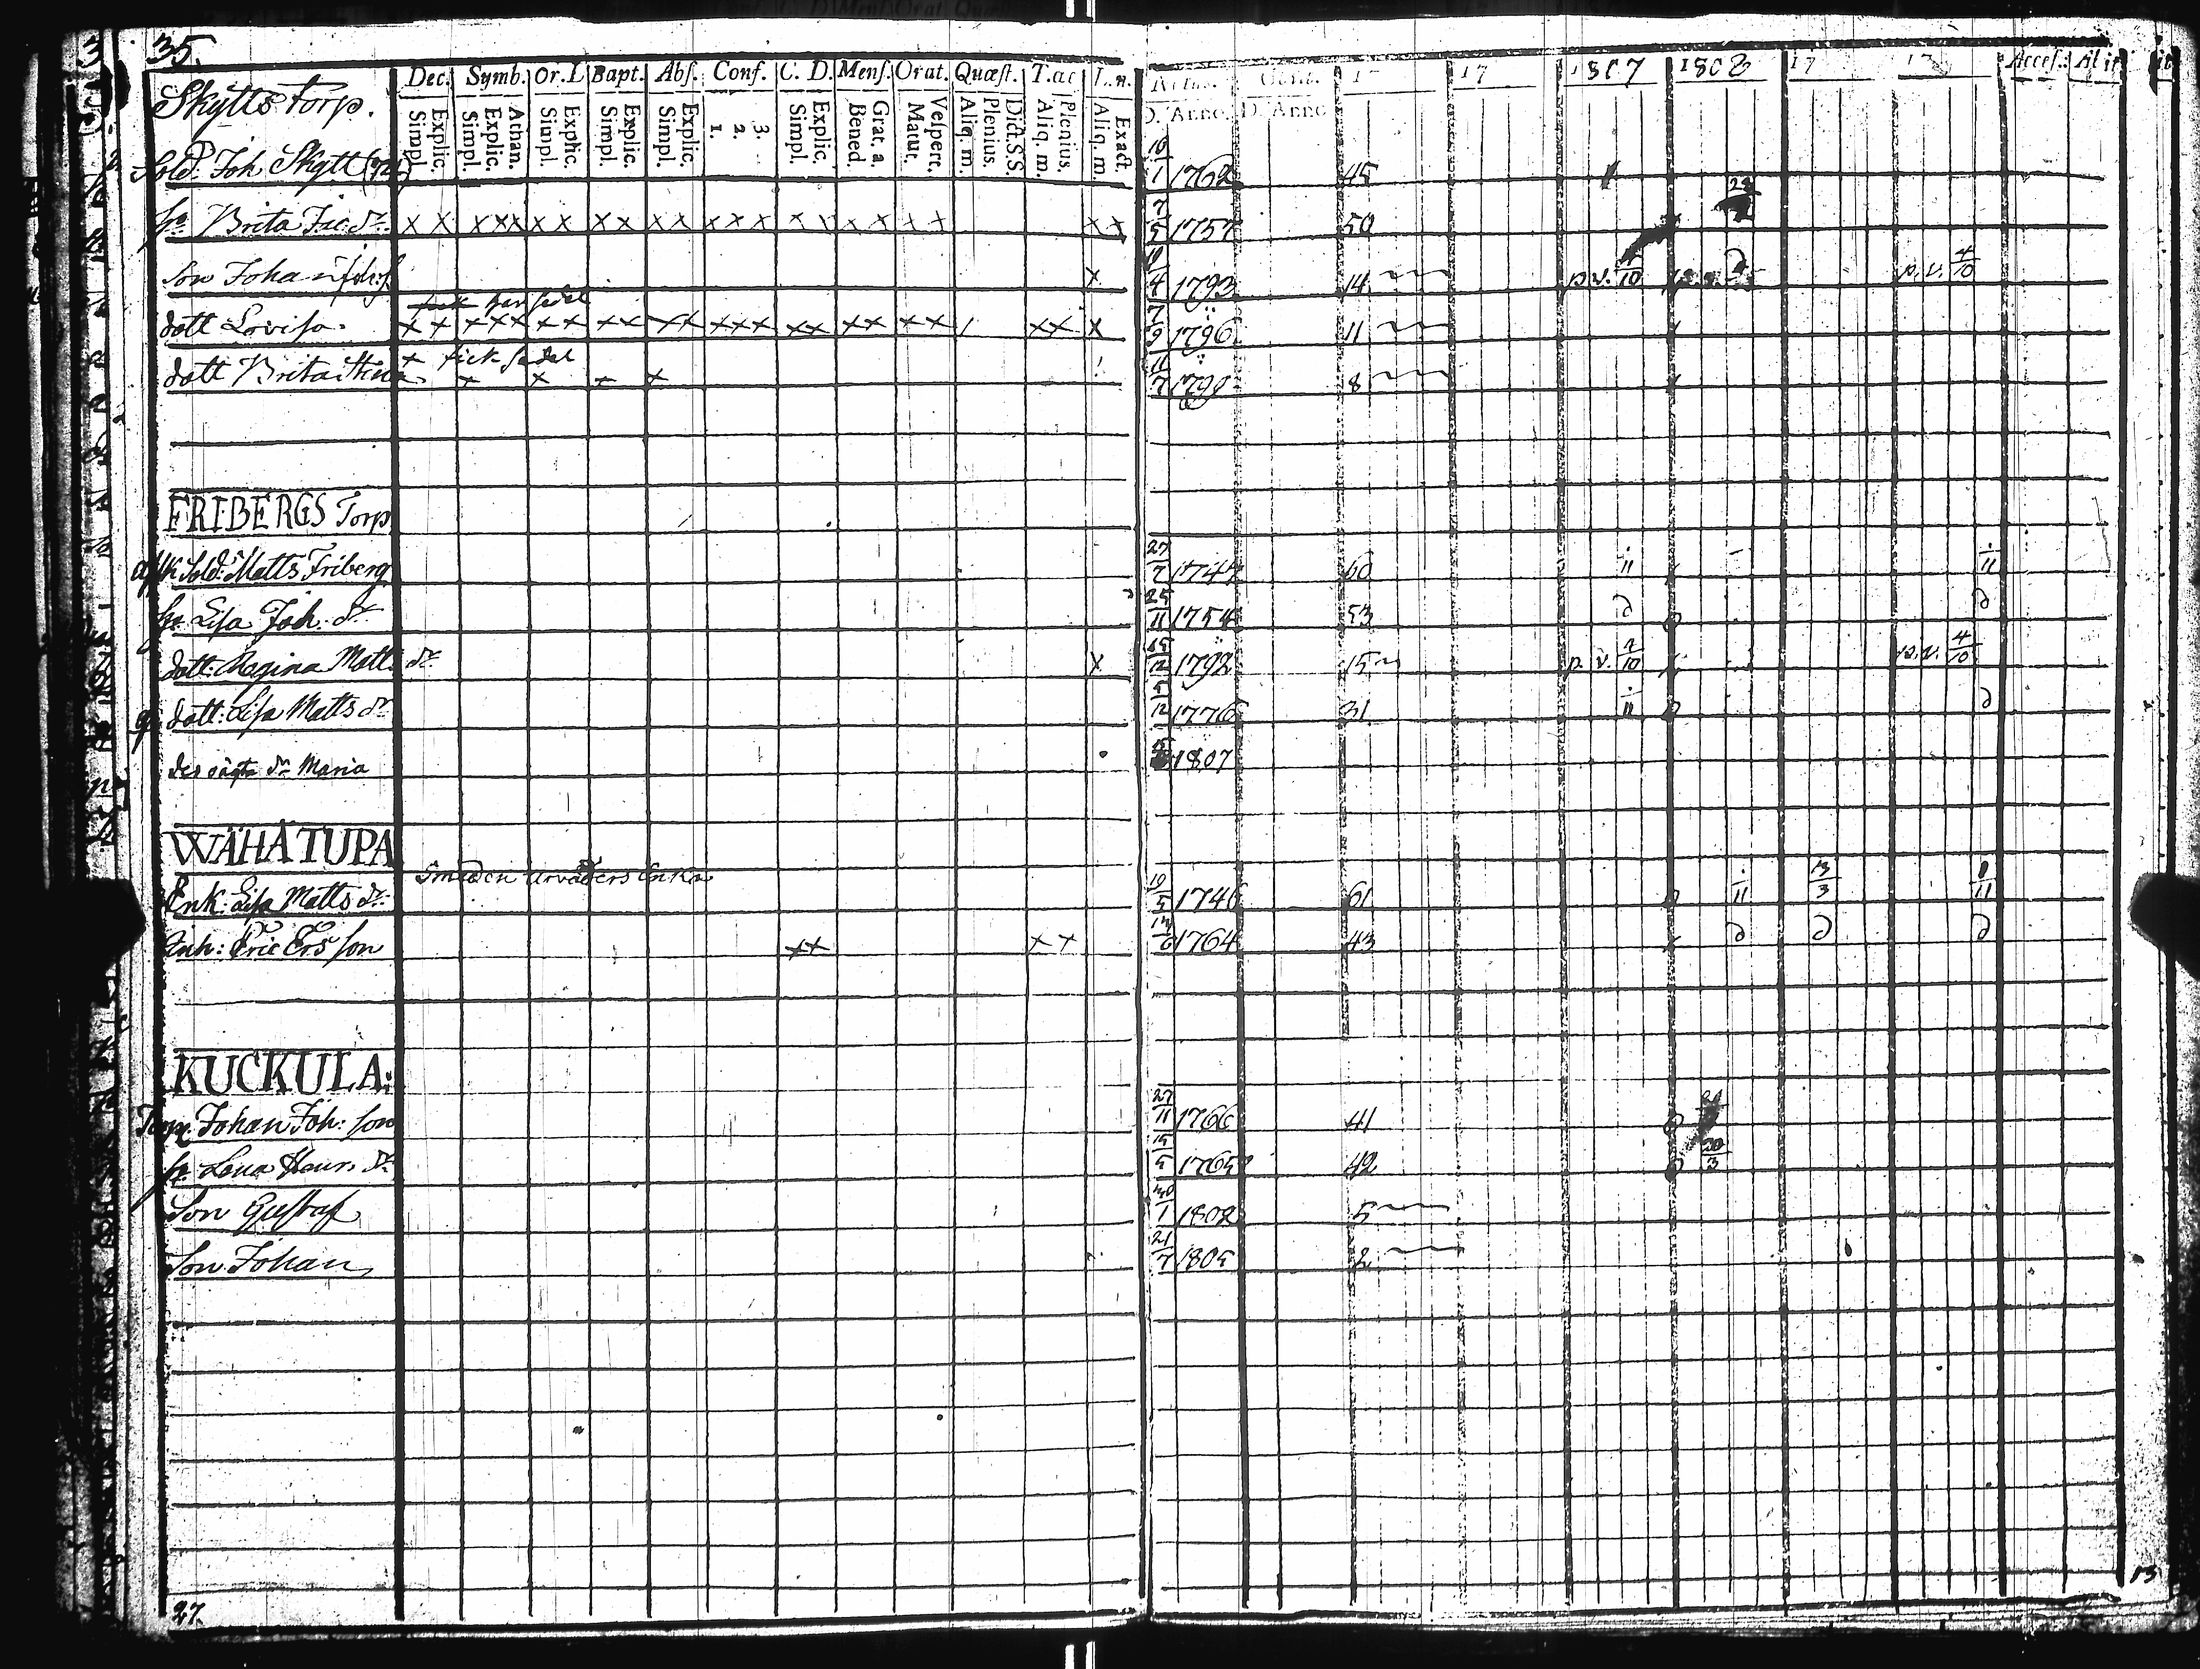 35.
Dec. Symb. Or. L Bapt. Abs. Conf. C. D. Mens. Orat. Quæst. T. æc L. n. Natus. D. Anno. D. Anno 17 17 1807 1808 17 17 Access. Abiit
Explic. Simpl. Athan. Explic. Simpl. Explic. Simpl. Explic. Simpl. Explic. Simpl. 3. 2. 1. Explic. Simpl. Grat. a. Bened. Vespert. Matut. Dict. S.S. Plenius. Aliq. m. Plenius. Aliq. m. Exact. Aliq. m.
Skytts torp.
Sold. Joh Skytt 10/1 1762 45
hu Brita Jac. dr x x x x x x x x x x x x x x x x x x x x x x x 7/5 1757 50
Son Johan x 4 1793 14 p.v. /10 p.v. 4/10
fick har sedel
dott Lovisa. x x x x x x x x x x x x x x x x x x x x x x x 7/9 1796 11
fick sedel
dott Brita Stina x x x x x 11/7 8
FRIBERGS Torp
Sold: Matts Friberg 27/7 60 11 11
hu Lisa Joh. dr 25/11 1754 53 d d
dott. Regina Matts dr x 15/12 1792 15 p. v. 4/10 p.v. 4/10
dott: Lisa Matts dr 12 1776 31 11 d
des oägta dr Maria 1807
WÄHÄTUPA
Smeden Enka
Enk: Lisa Matts dr 19/5 1746 61 11 13/3 11
Inh: Eric Ers son x x x x 6 1764 43 d d d
KUCKULA:
Torp. Johan Joh: son 27/11 1766 41
hu Lena Henr. dr 15/5 1765 42 20/3
Son Gustaf 1 1802 5
Son Johan 21/7 1805 2
27.
13